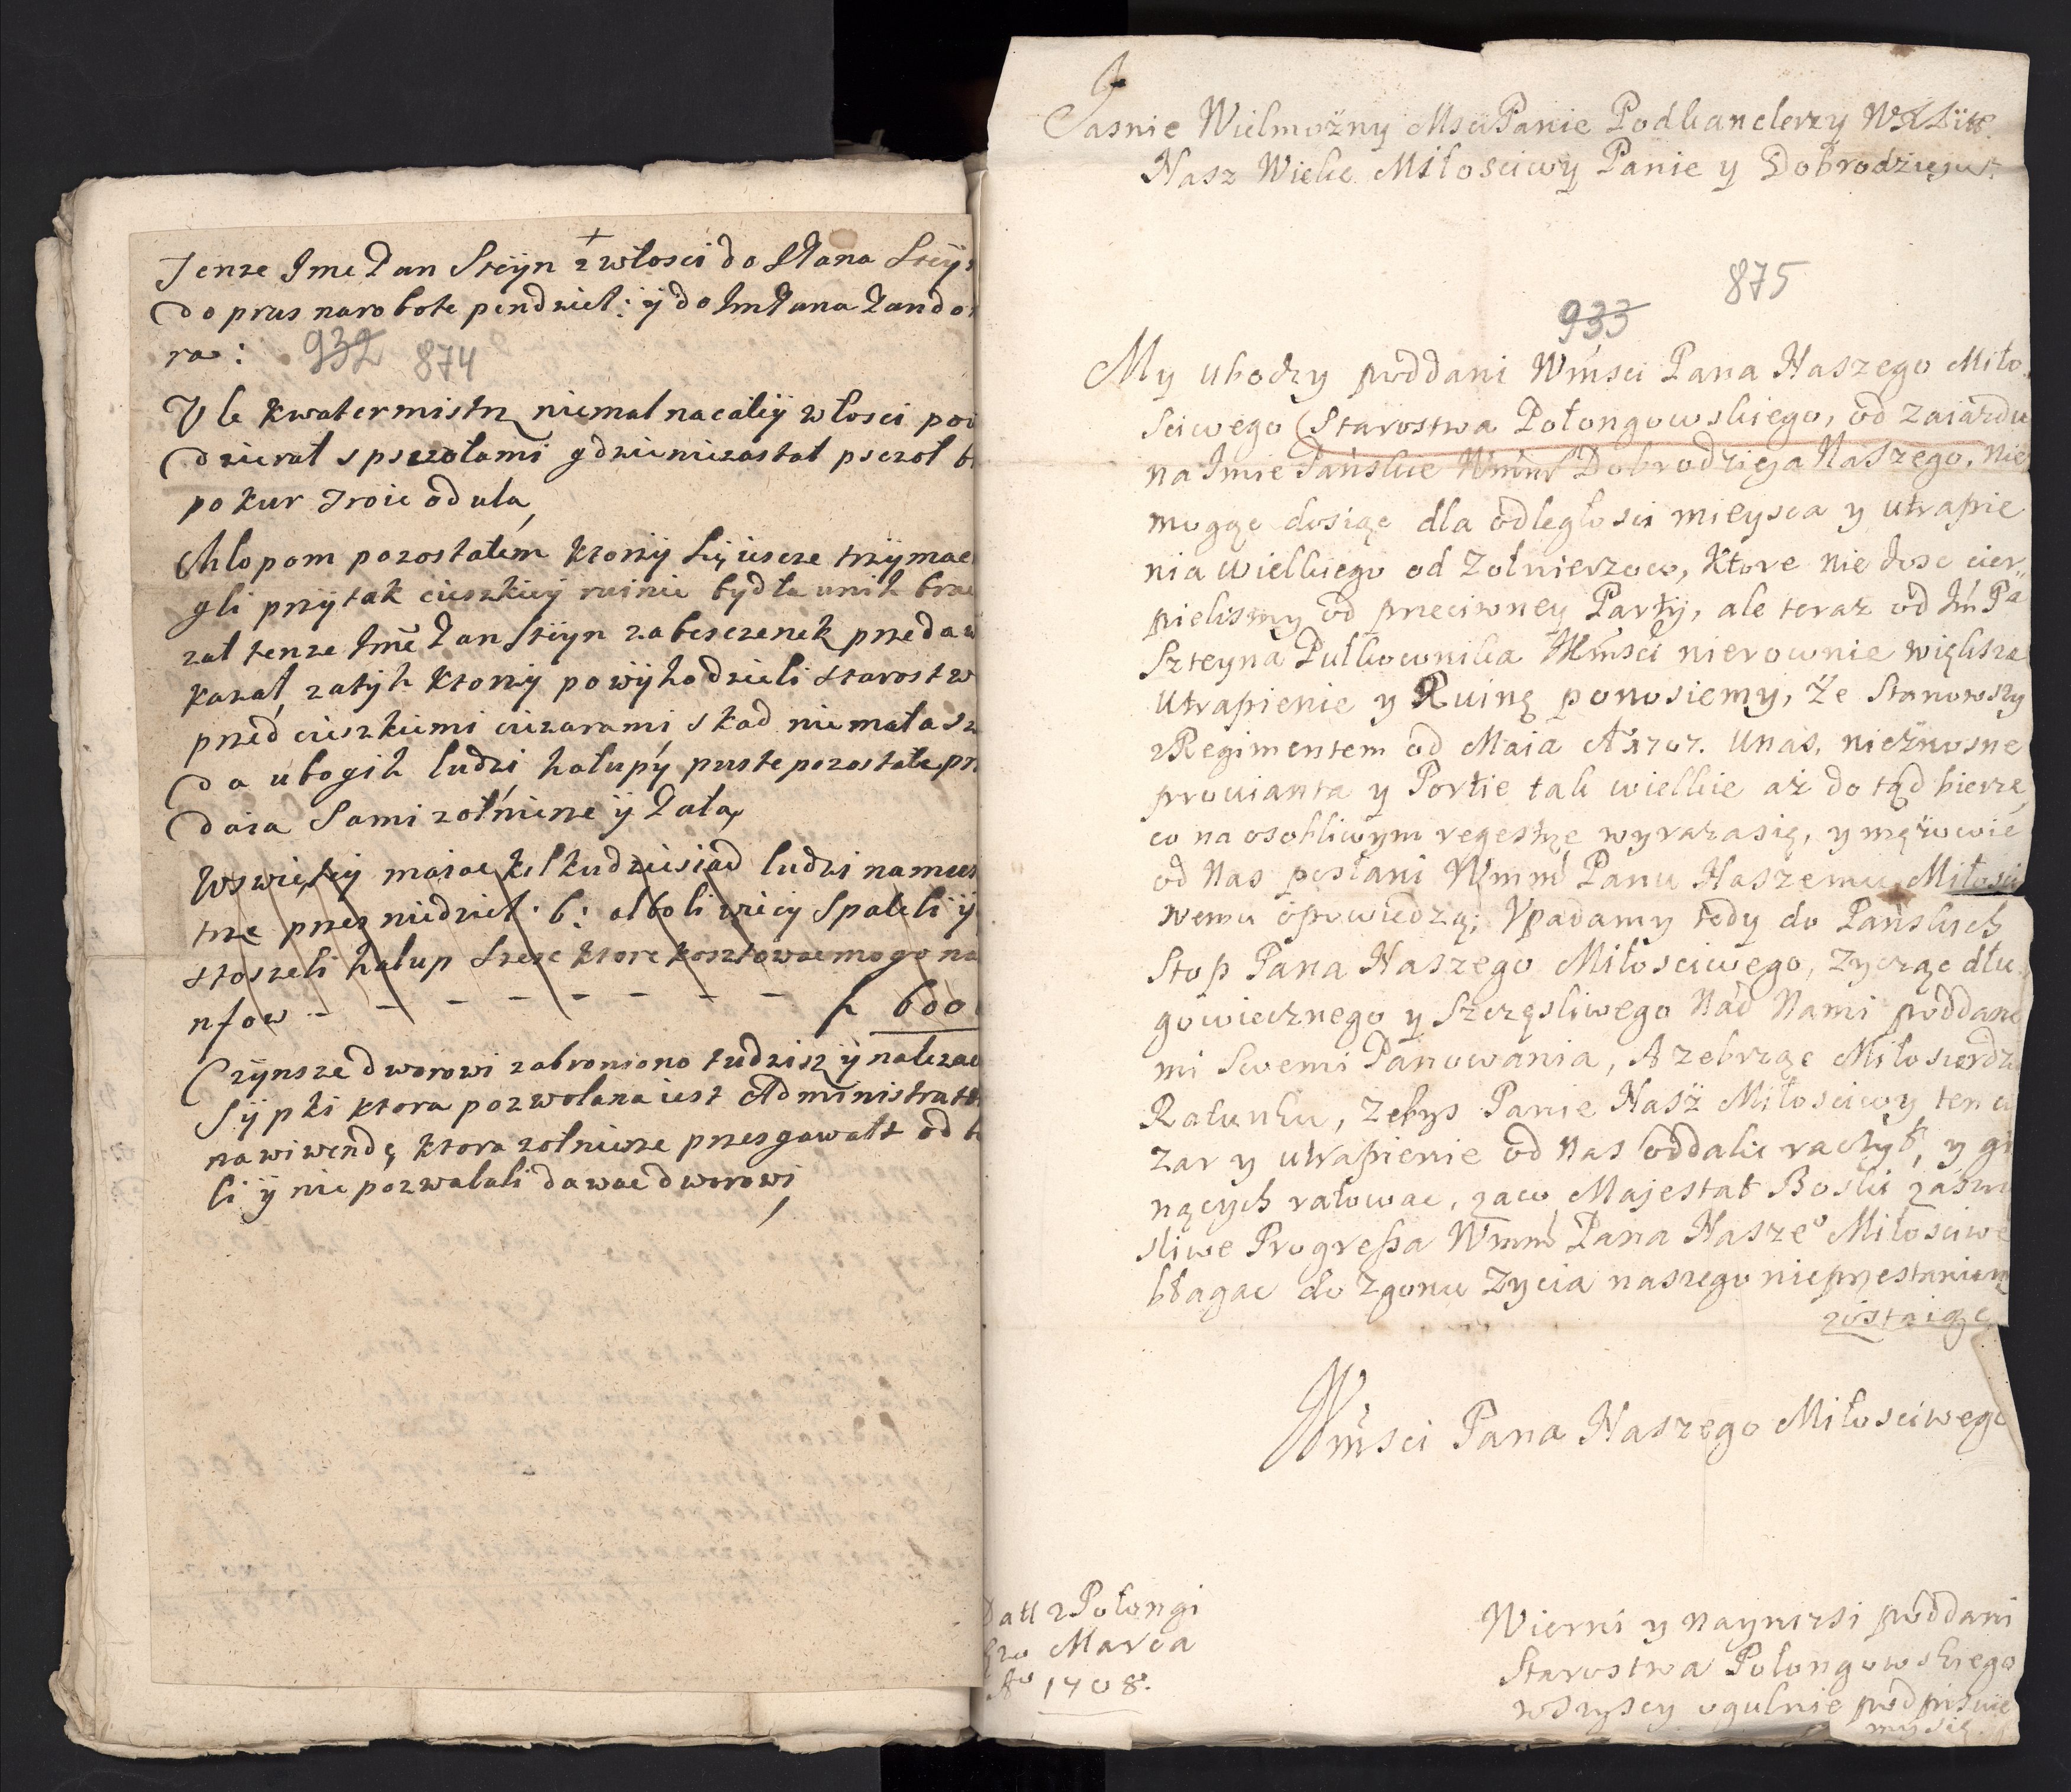 Tenze Jme Pan Steÿn z włosci do Pana Steÿ
do prus na robote pendziel: ÿ do Jm Pana Pando
ra:
932 874
Vle kwatermistrz niemal na calÿ włosci po
dzieral s pszołami gdzie niezastal psczoł b
po kur troie od ula,
Chlopom pozostałem ktorÿ się iescze trzÿmac
gli przÿ tak cieszkieÿ ruinie bydła unih brac
zal tenze Jme Pan Steÿn za bescenek przedaw
kazał, za tÿh ktorÿ powÿhodzieli starostw
przed cieszkiemi ciezarami, skad niemała sz
da ubogih ludzi hałupÿ puste pozostałe prz
daia Sami zołnierze ÿ Pala,
W swiętey maiac kilkudziesiad ludzi na
trze przes niedziel: 6: alboli wiecy Spaleli ÿ
hałup szesc ktore kosztowac mogo na
nsow - - - - - - - - f 600
Czÿnsze dworowi zabroniono tudzisz ÿ nalezac
Sÿpki ktora pozwolana iest Administrat
na wiwendę, ktora zołnierze przes gwałt od b
li ÿ nie pozwalali dawac dworowi,
Jasnie Wielmożny Msći Panie Podkanclerzy WXLitt.
Nasz Wielce Miłosciwy Panie y Dobrodzieju.
875
933
My ubodzy poddani Wmsci Pana Naszego Miło
sciwego Starostwa Połongowskiego, od zaiazdu
na Imie Pańskie Wmm Dobrodzieja Naszego, nie
mogąc dosiąc dla odległosci mieysca y utrapie
nia wielkiego od Zołnierzow, Ktore nie dosc cier
pielismy od przeciwney Partÿ, ale teraz od Jm Pa
Szteyna Pułkownika Wmsci nierownie większe
Utrapienie y Ruinę ponosiemy, że Stanowszy
z Regimentem od Maia A° 1707. Unas, nieznosne
prowianta y Portie tak wielkie aż do tąd bierze,
co na osobliwym regestrze wyraza się, y mężowie
od Nas posłani Wmm Panu Naszemu Miłosci
wemu opowiedzą; Vpadamy tedy do Pańskich
Stop Pana Naszego Miłosciwego, Zycząc dłu
gowiecznego y Szczęsliwego Nad Nami poddane
mi Swemi Panowania, A zebrząc Miłosierdzi
Ratunku, Zebys Panie Nasz Miłosciwy ten ci
zar y utrapienie od Nas oddalic raczył, y gi
nących ratowac, zaco Majestat Boski
sliwe Progressa Wmm Pana Nasze° Miłosciwe
błagac do Zgonu Zycia naszego nieprzestaniem
zostaiąc
Wmsci Pana Naszego Miłosciwego
Datt z Połongi
Marca
A° 1708.
Wierni y Naynizsi poddani
Starostwa Połongowskiego
wszyscy ogulnie podpisuie
my się.